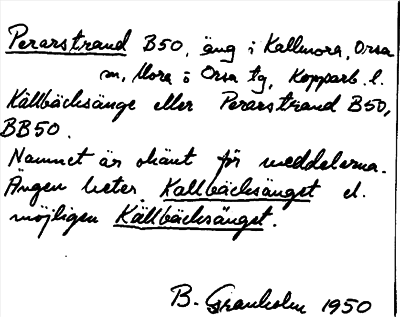 Perarstrand B50, äng i Kallmora, Orsa
sn, Mora o Orsa tg, Kopparb. l.
Källbäcksänge eller Perarstrand B50,
BB50.
Namnet är okänt för meddelarna.
Ängen heter Kallbäcksänget el.
möjligen Källbäcksänget.
B. Granholm 1950